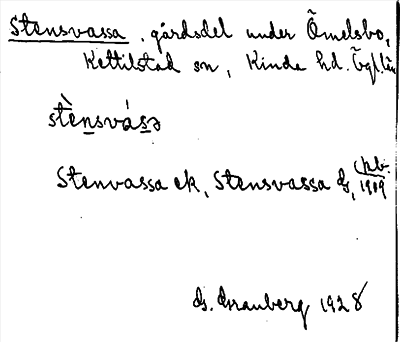 Stensvassa . gårdsdel under Õmelsbo,
Kettilstad sn, Kinda hd. Ögl. län
stènsvásə
Stenvassa ek, Stensvassa
1909
Granberg 1928